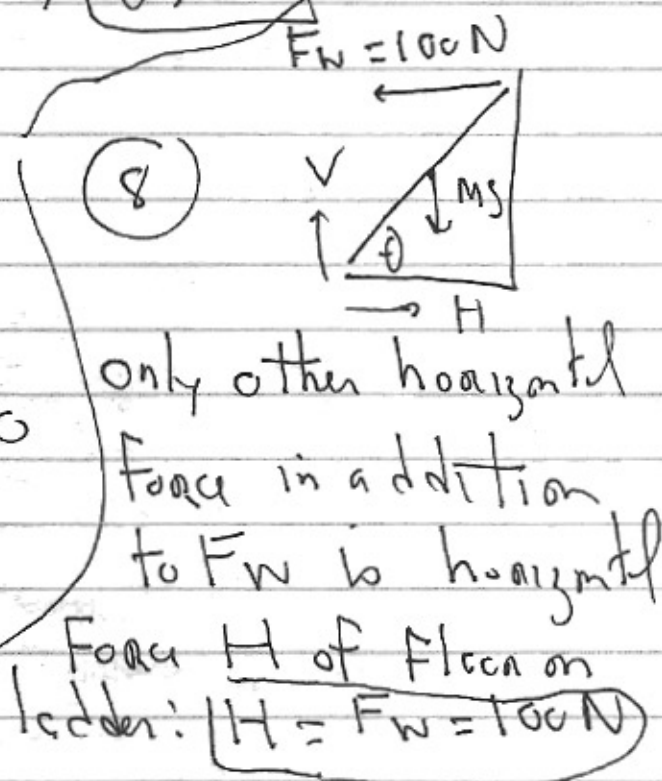 Fw = 100N
8
V
Mg
θ
H
only other horizontal
Force in addition
to Fw is horizontal
Force H of Floor on
ladder: H = Fw = 100N